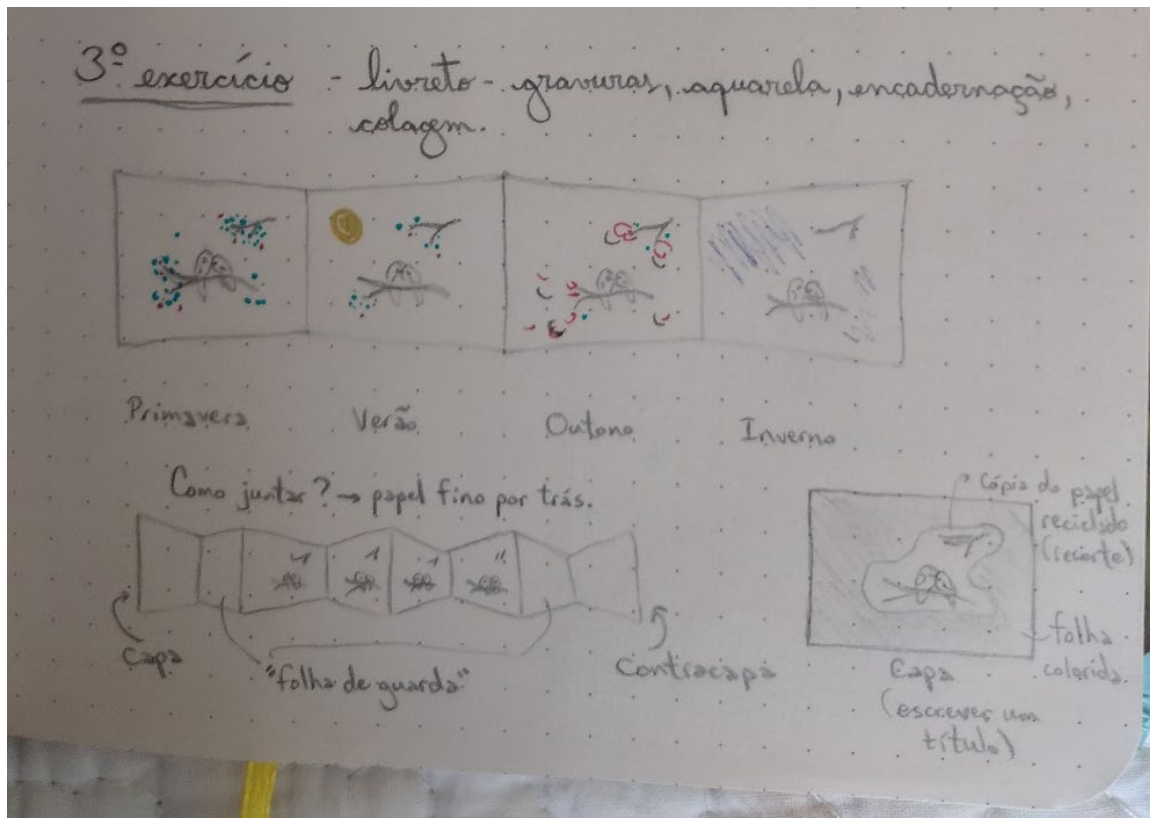 3º exercício - livreto - gravuras, aquarela, encadernação,
colagem.
Primavera Verão Outono Inverno
Como juntar? → papel fino por trás.
Capa
"folha de guarda"
Contracapa
Cópia do papel
reciclado
(recorte)
folha
colorida.
Capa
(escrever um
título)